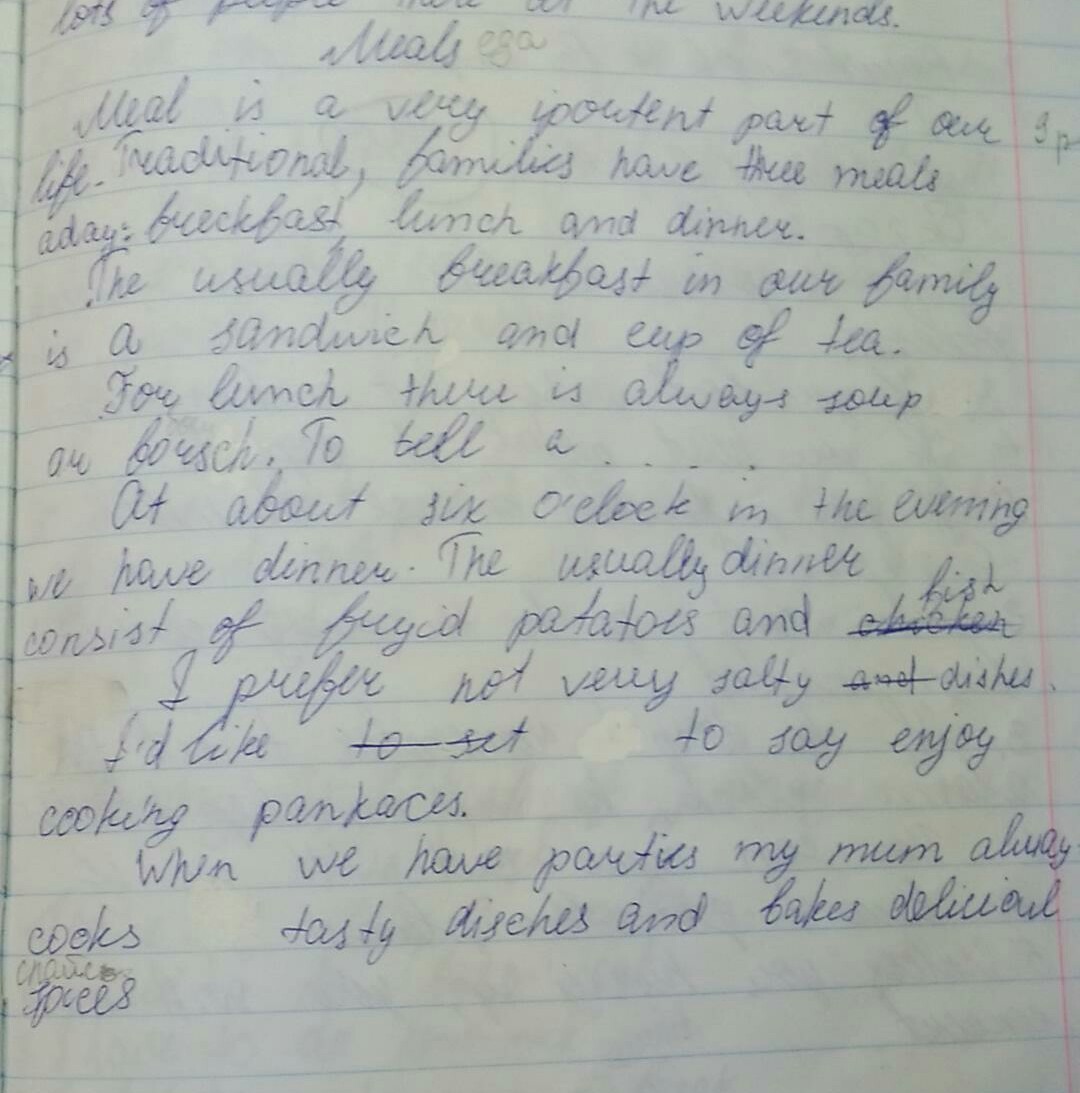 lots of people there at the weekends.
Meals еда
Meal is a very ipoutent part of our
life. Traditional, families have three meals
aday: breckfast, lunch and dinner.
The usually breakfast in our family
is a sandwich and cup of tea.
For lunch there is always soup
or borsch. To tell a . . . . .
At about six o'clock in the evening
we have dinner. The usually dinner
fish
consist of fryid patatoes and chicken
I prefer not very salty and dishes.
I'd like to set to say enjoy
cooking pankaces.
When we have parties my mum alway
cocks tasty disches and bakes